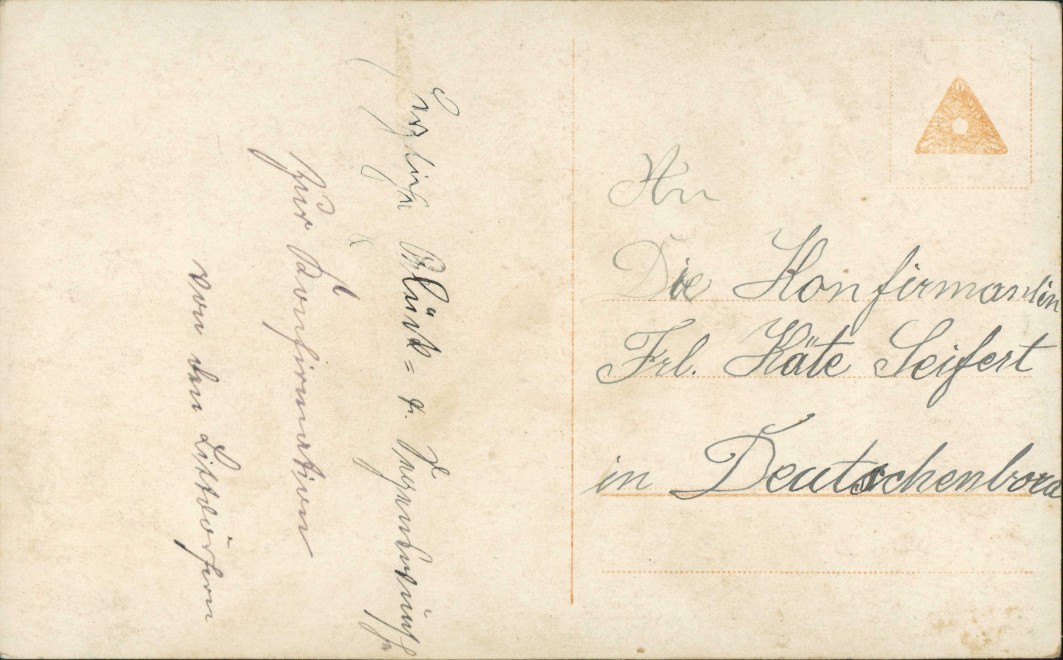 Herzliche Glück= u. Segenswünsche
zur Konfirmation
von den
An
Die Konfirmandin
Frl. Käte Seifert
in Deutschenbora